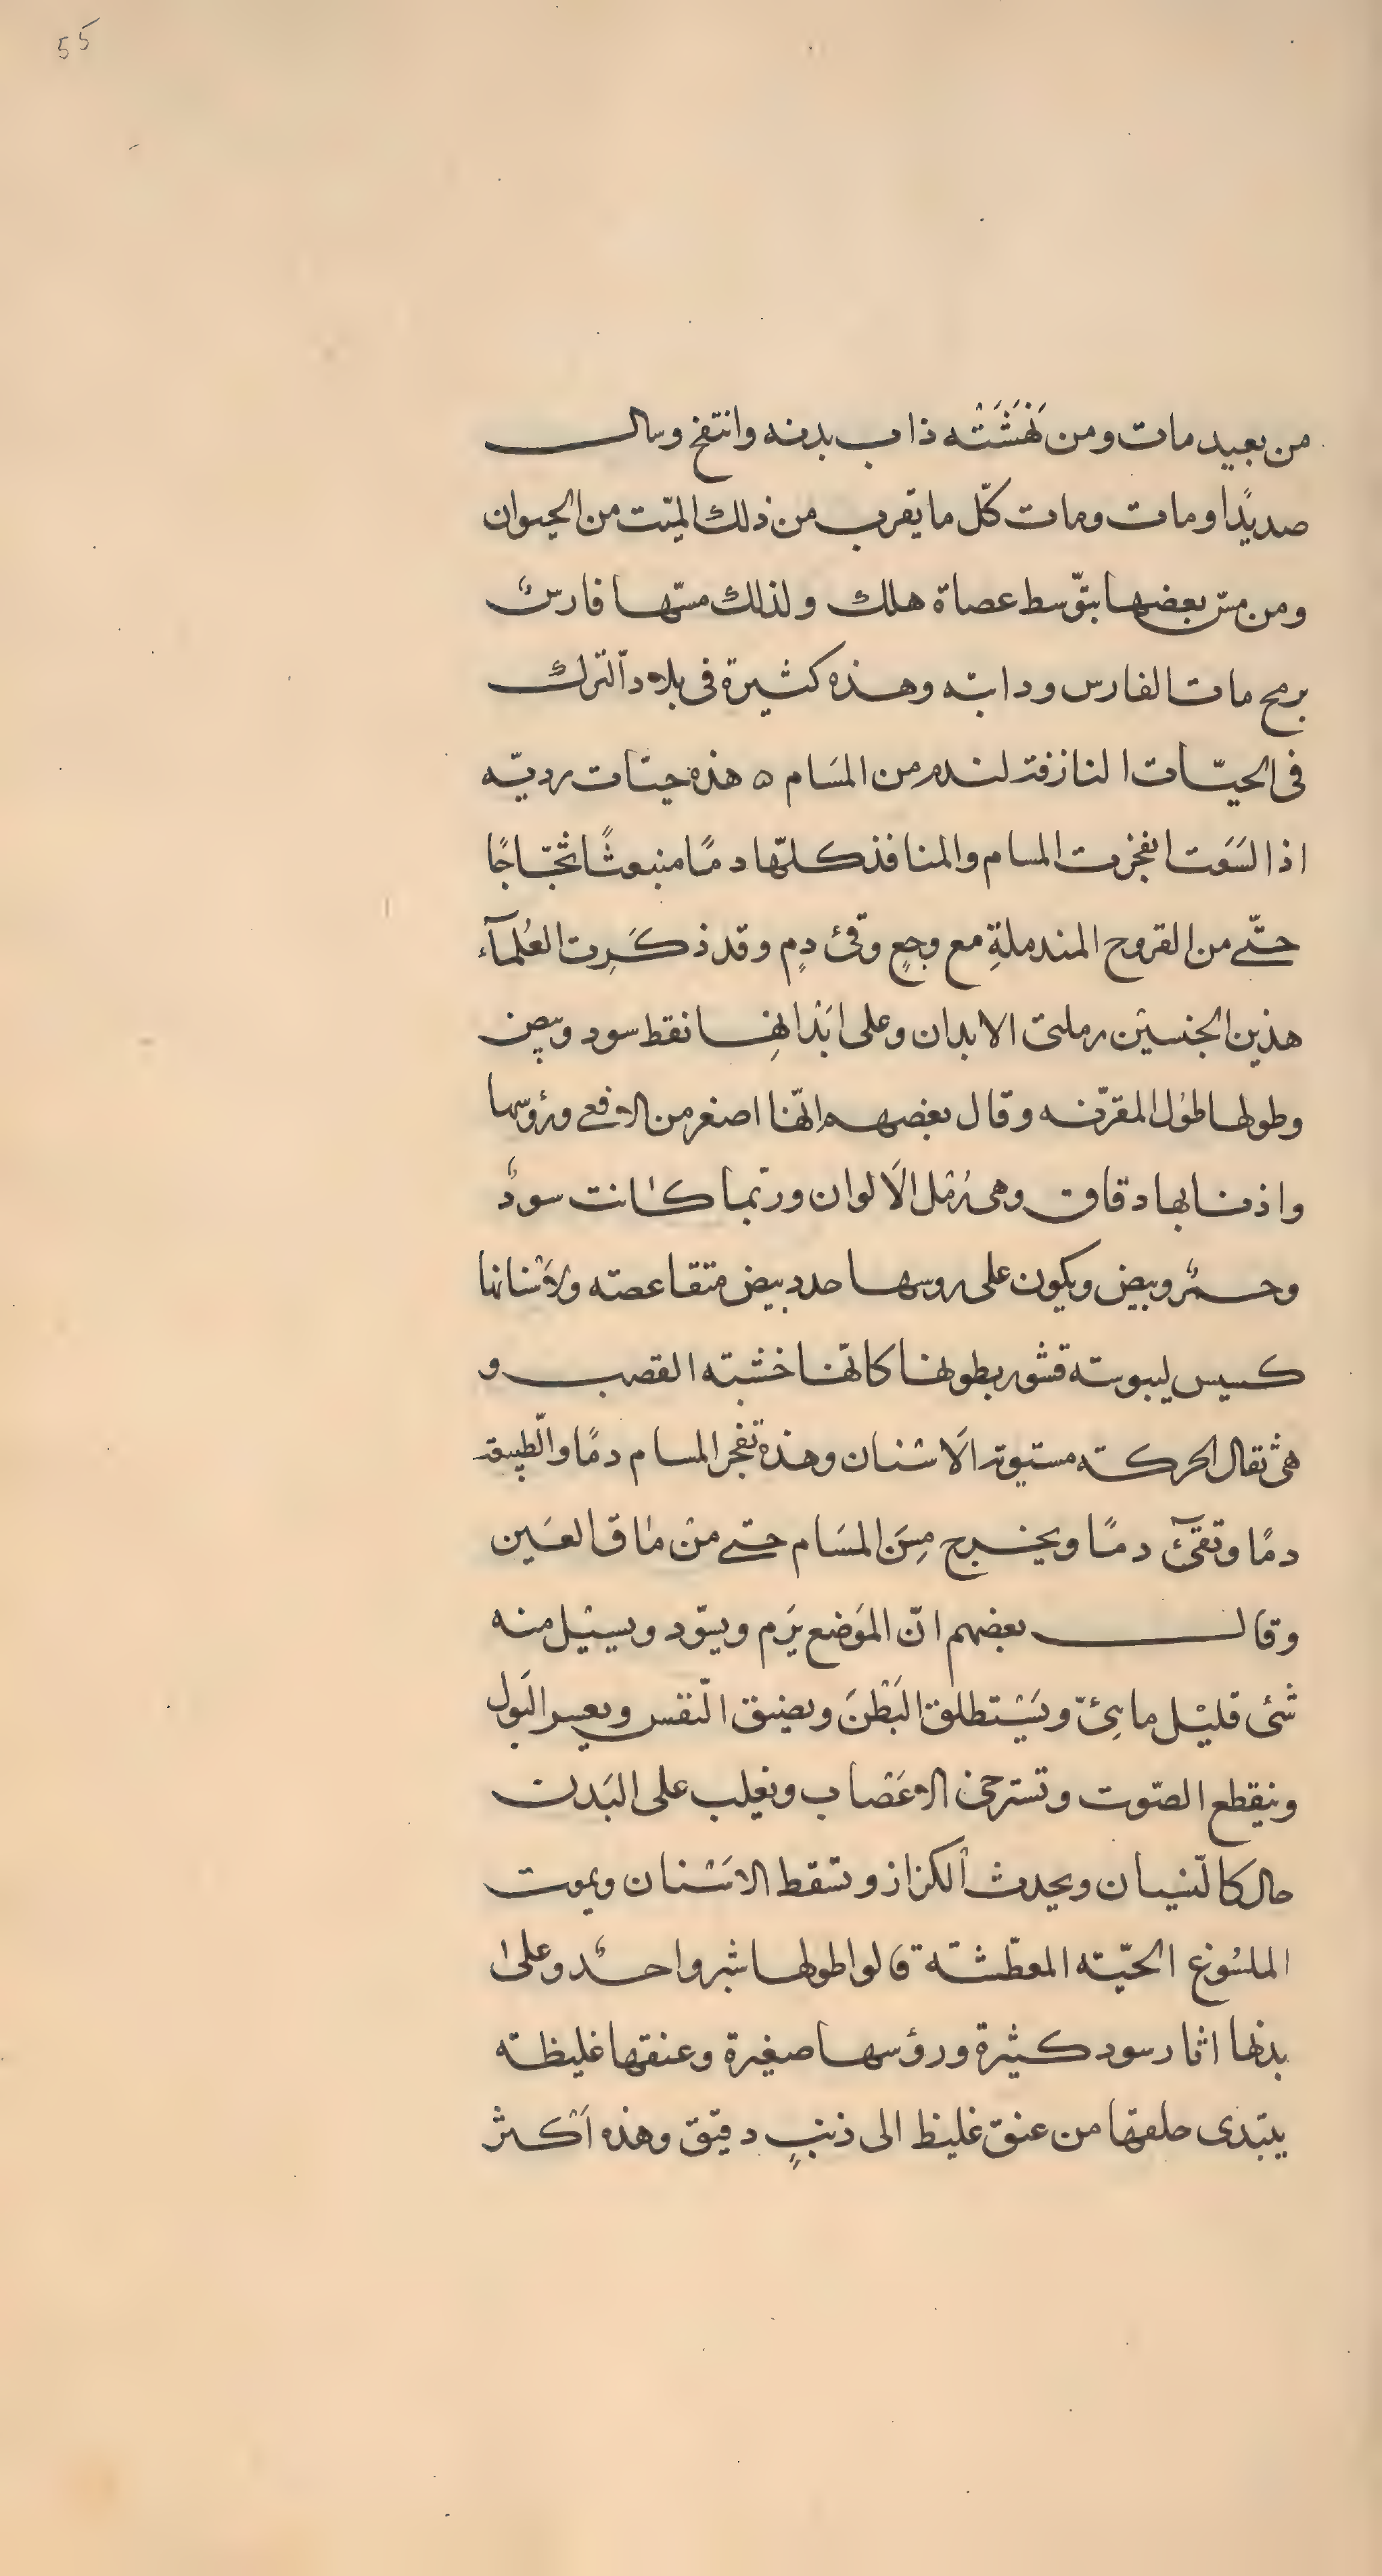 55
من بعيد مات ومن نَهَشَتْه ذاب بدنه وانتفخ وسال
صديدًا ومات ومات كلّ ما يقرب من ذلك الميّت من الحيوان
ومن مسّ بعضها بتوّسط عصاة هلك ولذلك مسّها فارسٌ
برمح مات الفارس ودابته وهذه كثيرة فى بلاد آلترك
فى الحيّات النازفة لندم من المسَام ه هذه حيّات رديّه
اذا لسَعَت انفجرت المسام والمنافذ كلّها دمًا منبعثًا ثجّاجًا
حتّے من القروح المندملةِ مع وجعٍ وقئ دمٍ وقد ذكَرِت العُلمآء
هذين الجنسيْن رملتى الابدان وعلى ابْدانِها نقط سود وبيض
وطولها طوْل المقرّنه وقال بعضهم انّها اصغر من الافعے ورؤسها
واذنابها دقاق وهى رُمْل الَالوان وربّما كانت سودٌ
وحمرٌ وبيض ويكون على روسها حدد بيض متقاعصته ولاسْنانها
كسيس ليبوسته قشور بطونها كانّها خشبته القصب و
هى ثقال الحركته مستيوية الَاسْنان وهذه تفجر المسام دمًا والّطبيقة
دمًا وتقئَ دمًا ويخرج مِنَ المسَام حتے منْ ماٰق العَين
وقال بعضهم انّ الموَضع يَرِم ويسوّد ويسيْل منه
شئ قليْل مابِئّ ويَسْتطلق البَطْنَ ويضيق الّنفس ويعسر البَول
وينقطع الصّوت وتسترخى الاعَصْاب ويغلب على البَدن
حال كالّنسيان ويحدث اْلكزاز وتسقط الاسَنان ويموت
الملسُوع الحيّته المعطّشتة قالوا طولها شبر واحدٌ وعلىٰ
بدنها اثار سود كثيْرة ورؤسها صغيرة وعنقها غليظته
يبتدى حلقتها من عنق غليظ الى ذنبٍ دقيق وهذه اَكثر